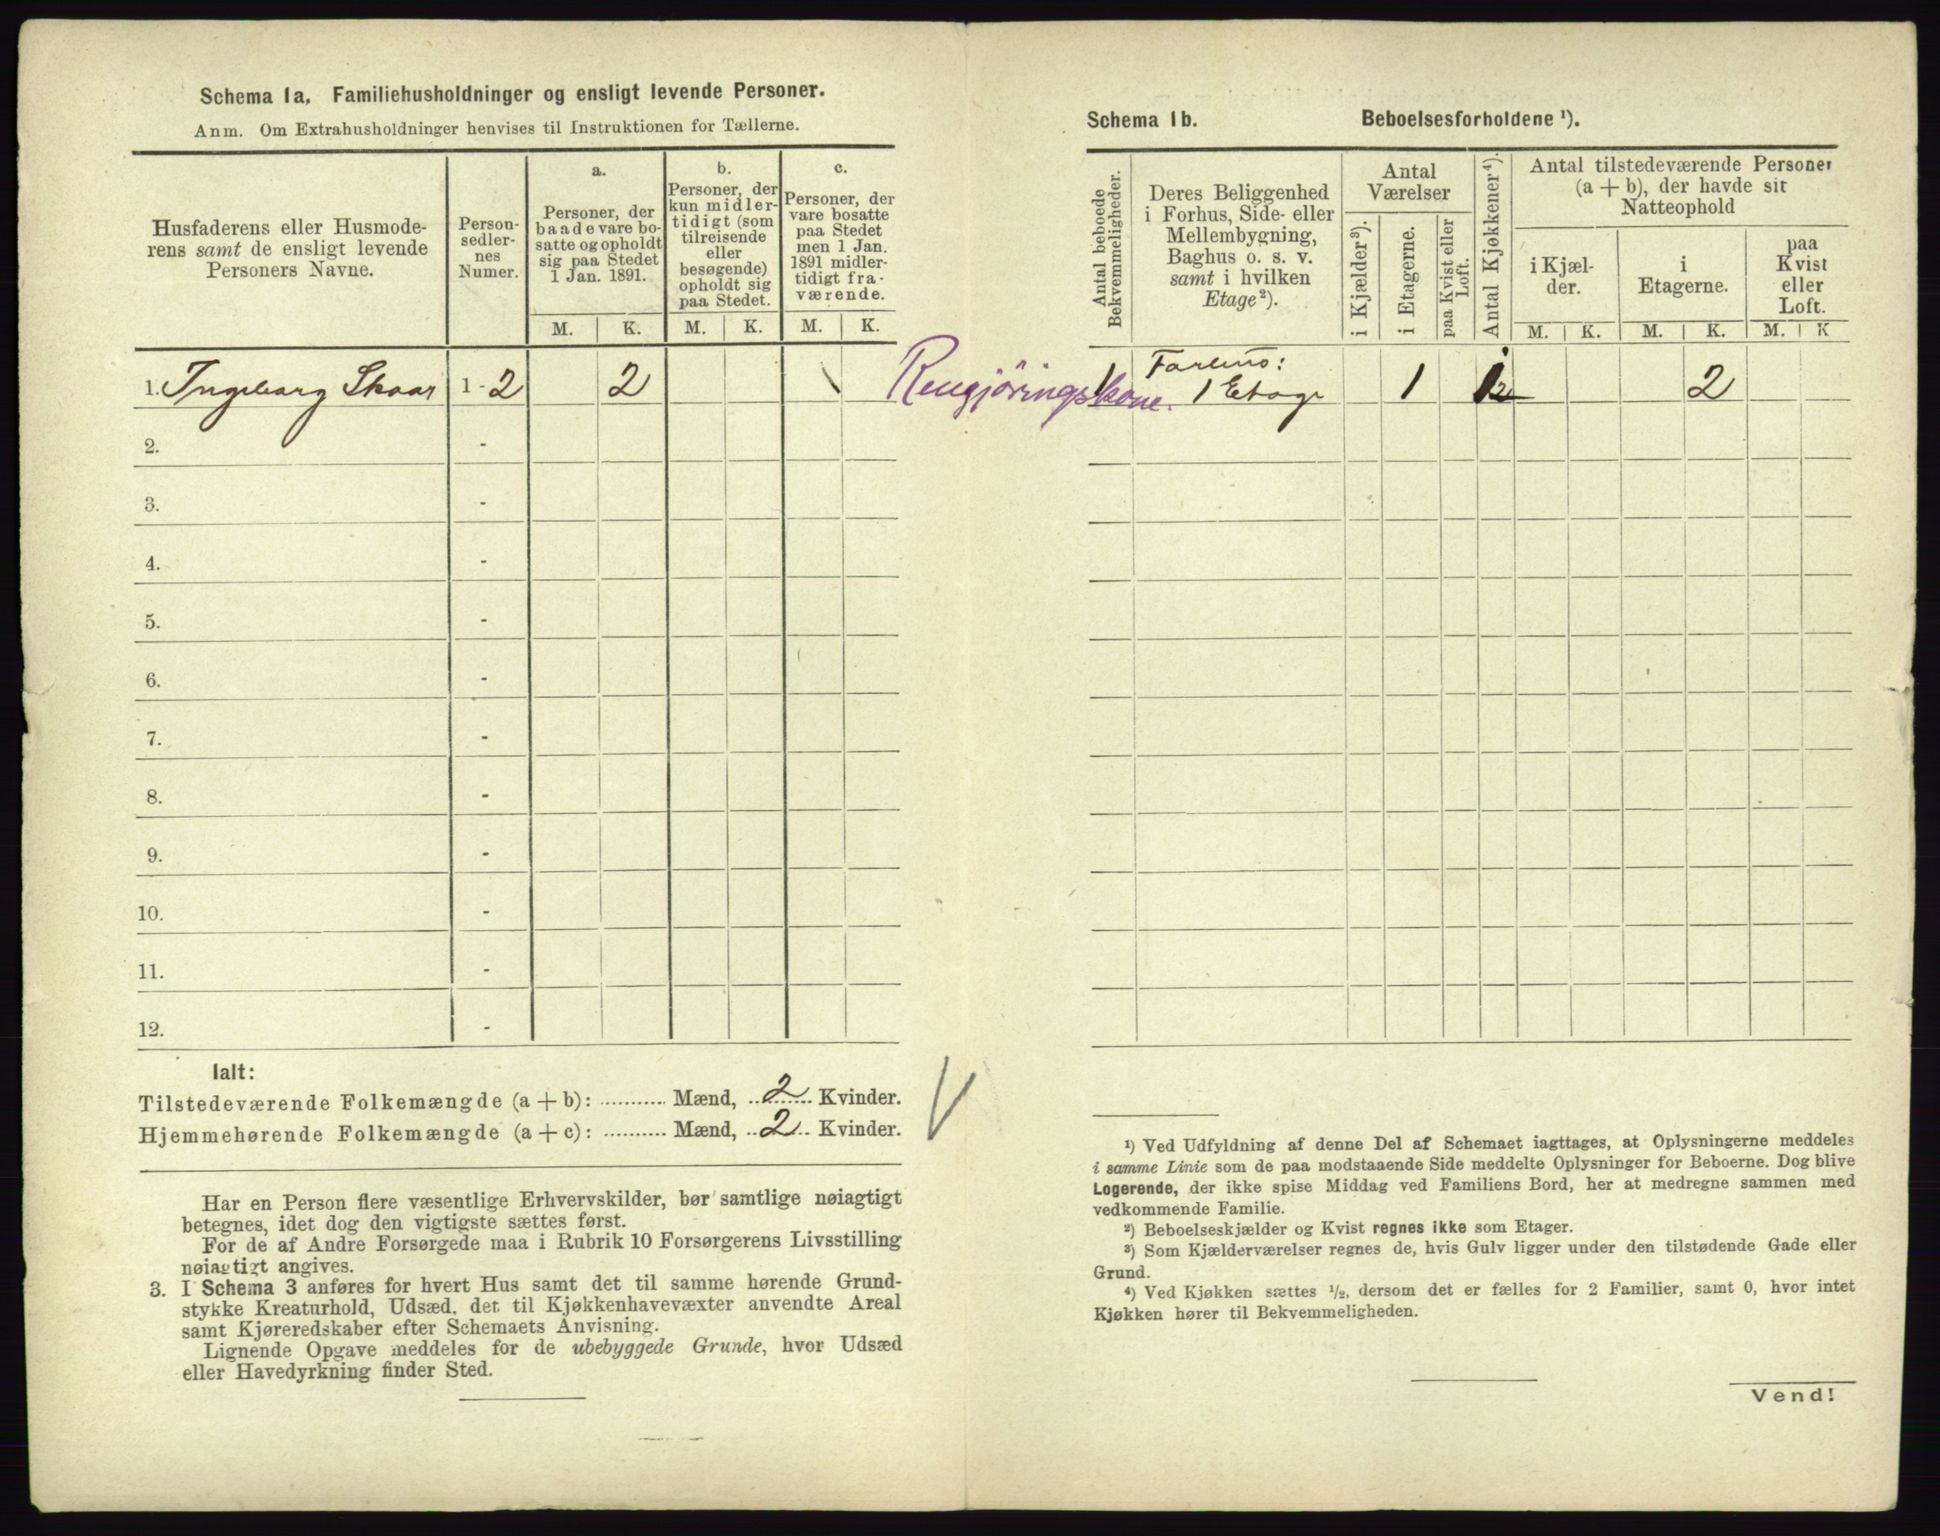 Schema 1a. Familiehusholdninger og ensligt levende Personer.
Anm. Om Extrahusholdninger henvises til Instruktionen for Tællerne.
Husfaderens eller Husmode-
rens samt de ensligt levende
Personers Navne.
Person-
sedler-
nes
Numer.
a.
Personer, der
baade vare bo-
satte og opholdt
sig paa Stedet
1 Jan. 1891.
b.
Personer, der
kun midler-
tidigt (som
tilreisende
eller
besøgende)
opholdt sig
paa Stedet.
c.
Personer, der
vare bosatte
paa Stedet
men 1 Jan.
1891 midler-
tidigt fra-
værende.
M. K. M. K. M. K.
1. Ingeborg Skaar 1 - 2 2
2. -
3. -
4. -
5. -
6. -
7. -
8. -
9. -
10. -
11. -
12. -
Ialt:
Tilstedeværende Folkemængde (a + b): ........... Mænd, 2 Kvinder.
Hjemmehørende Folkemængde (a + c): ........... Mænd, 2 Kvinder.
Har en Person flere væsentlige Erhvervskilder, bør samtlige nøiagtigt
betegnes, idet dog den vigtigste sættes først.
For de af Andre Forsørgede maa i Rubrik 10 Forsørgerens Livsstilling
nøiagtigt angives.
3. I Schema 3 anføres for hvert Hus samt det til samme hørende Grund-
stykke Kreaturhold, Udsæd, det til Kjøkkenhavevæxter anvendte Areal
samt Kjøreredskaber efter Schemaets Anvisning.
Lignende Opgave meddeles for de ubebyggede Grunde, hvor Udsæd
eller Havedyrkning finder Sted.
Schema 1b. Beboelsesforholdene ¹).
Antal beboede
Bekvemmeligheder.
Deres Beliggenhed
i Forhus, Side- eller
Mellembygning,
Baghus o. s. v.
samt i hvilken
Etage ²).
Antal
Værelser
i Kjælder ³).
i Etagerne.
paa Kvist eller
Loft.
Antal Kjøkkener ⁴).
Antal tilstedeværende Personer
(a + b), der havde sit
Natteophold
i Kjæl-
der.
i
Etagerne.
paa
Kvist
eller
Loft.
M. K. M. K. M. K
Rengjöringskone.
1 1 Etage 1 2
¹) Ved Udfyldning af denne Del af Schemaet iagttages, at Oplysningerne meddeles
i samme Linie som de paa modstaaende Side meddelte Oplysninger for Beboerne. Dog blive
Logerende, der ikke spise Middag ved Familiens Bord, her at medregne sammen med
vedkommende Familie.
²) Beboelseskjælder og Kvist regnes ikke som Etager.
³) Som Kjælderværelser regnes de, hvis Gulv ligger under den tilstødende Gade eller
Grund.
⁴) Ved Kjøkken sættes ½, dersom det er fælles for 2 Familier, samt 0, hvor intet
Kjøkken hører til Bekvemmeligheden.
Vend!